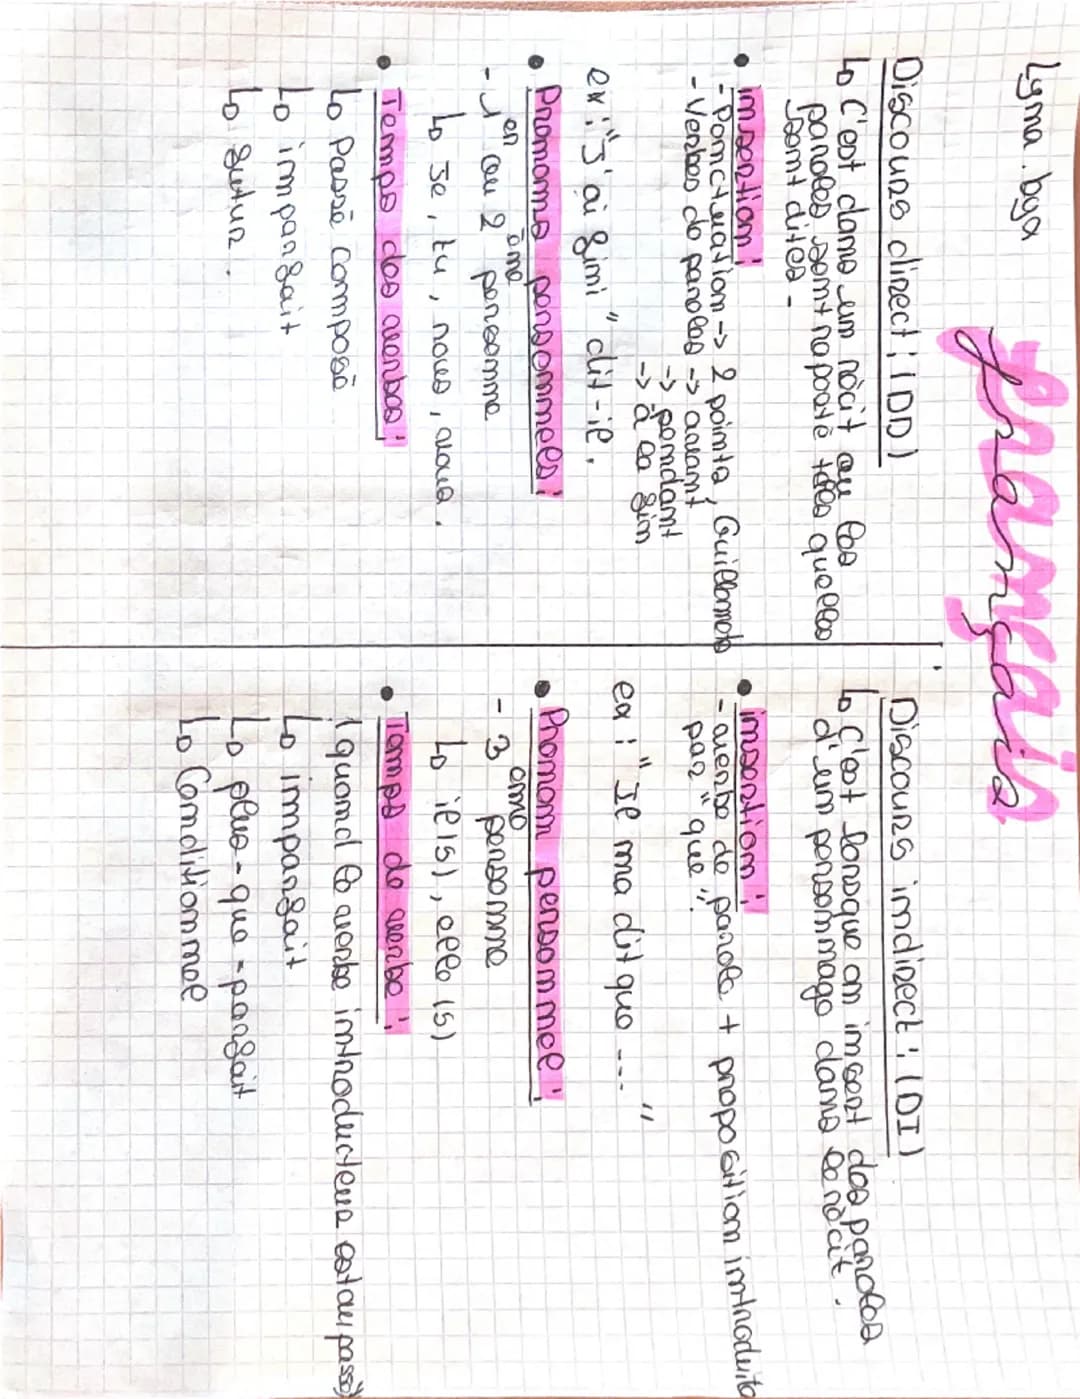 Lyna.bgx
français
Discours direct : (DD)
↳ C'est dans un récit où les
paroles sont raporté telles quelles
sont dites.
• insertion :
- Ponctuation -> 2 points, Guillemets
- Verbes de paroles -> avant
-> pendant
-> à la fin
ex : "J'ai fini" dit-il.
• Pronoms personnels :
- 1er ou 2ème personne
↳ Je, tu, nous, vous.
• Temps des verbes :
↳ Passé composé
↳ imparfait
↳ futur.
Discours indirect : (DI)
↳ C'est lorsque on insert des paroles
d'un personnage dans le récit.
• insertion :
- verbe de parole + proposition introduite
par "que".
ex : "Il ma dit que ---"
• Pronom personnel :
- 3ème personne
↳ il(s), elle(s)
• Temps de verbe :
(quand le verbe introducteur est au passé)
↳ imparfait
↳ plus-que-parfait
↳ Conditionnel